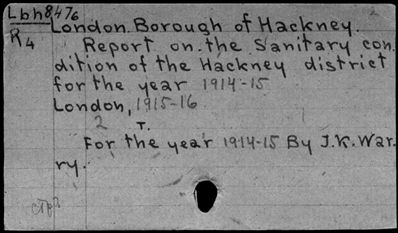 Lbh8476
R4
London. Borough of Hackney.
Report on the Sanitary con-
dition of the Hackney district
for the year 1914-15
London, 1915-16
2 T.
For the year 1914-15 By J.K. War-
ry.